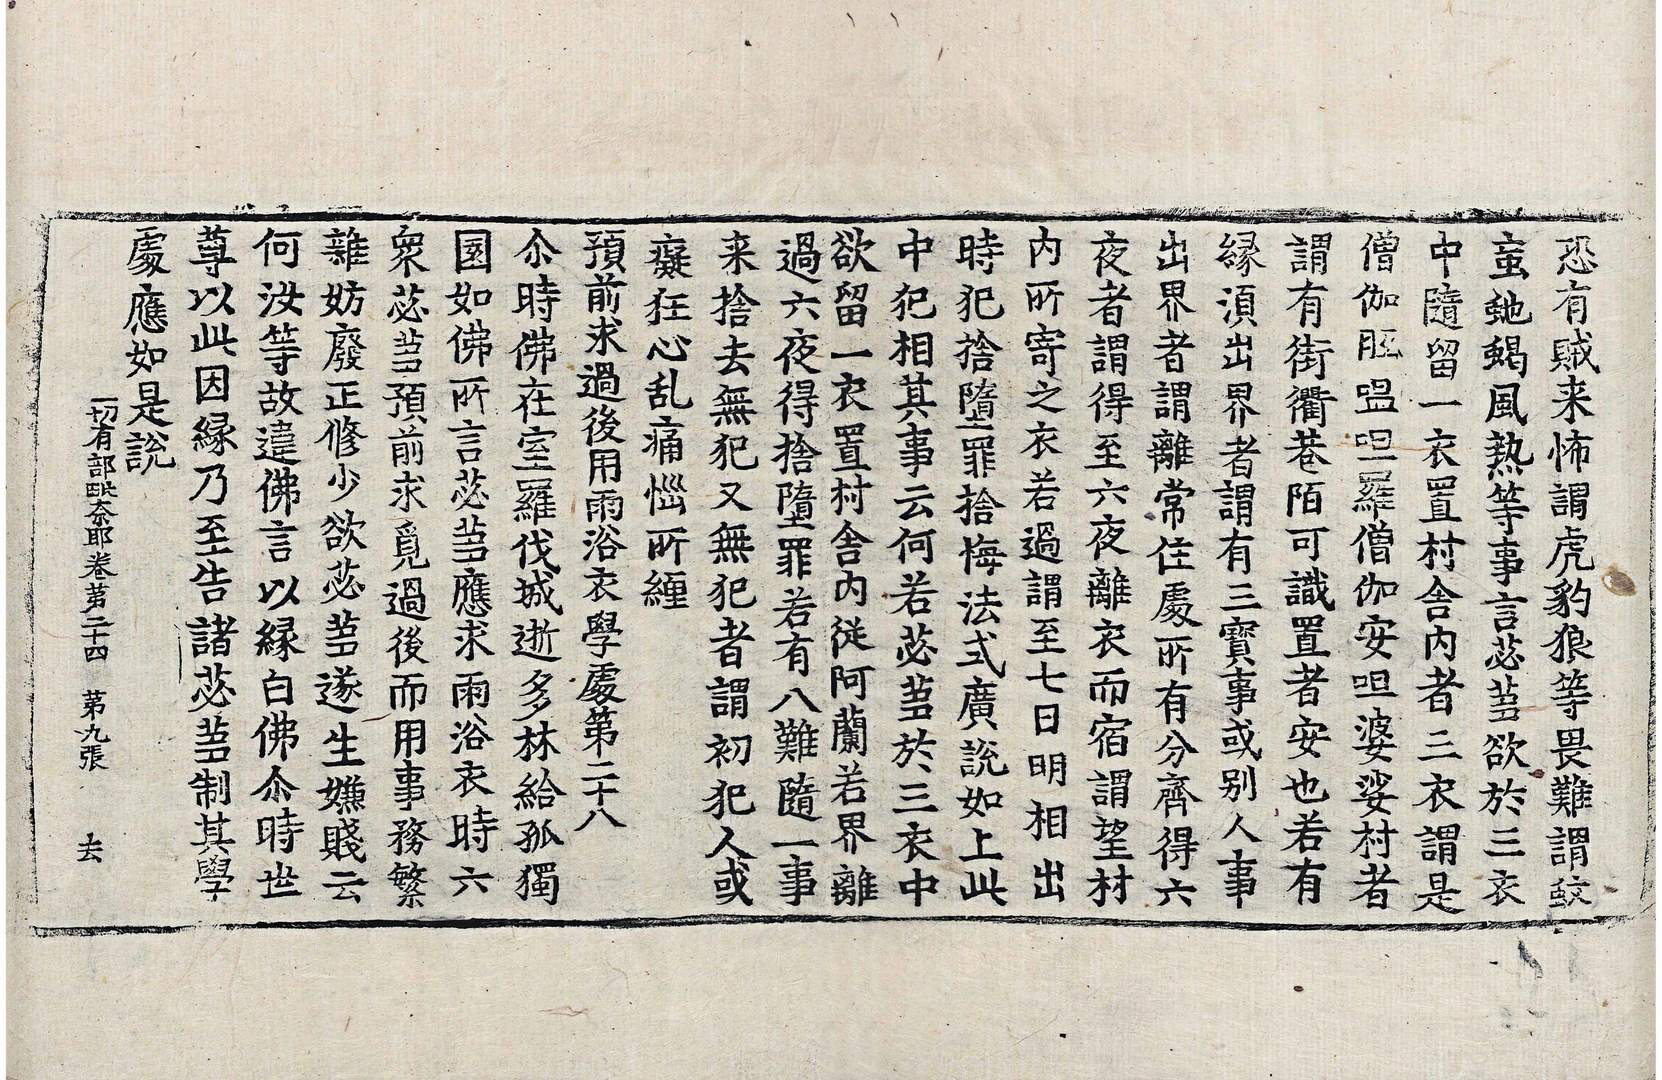 恐有賊来怖謂虎豹狼等畏難謂蚊
䖟虵蝎風熱等事言苾蒭欲於三衣
中隨留一衣置村舍内者三衣謂是
僧伽胝嗢呾羅僧伽安呾婆娑村者
謂有街衢巷陌可識置者安也若有
縁湏出界者謂有三寳事或别人事
出界者謂離常住處所有分齊得六
夜者謂得至六夜離衣而宿謂望村
内所寄之衣若過謂至七日明相出
時犯捨墮罪捨悔法式廣說如上此
中犯相其事云何若苾蒭於三衣中
欲留一衣置村舍内従阿蘭若界離
過六夜得捨墮罪若有八難隨一事
来捨去無犯又無犯者謂初犯人或
癡狂心乱痛惱所纏
預前求過後用雨浴衣學處第二十八
尒時佛在室羅伐城逝多林給孤獨
園如佛所言苾蒭應求雨浴衣時六
衆苾蒭預前求覓過後而用事務繁
雜妨廢正修少欲苾蒭遂生嫌賤云
何汝等故違佛言以縁白佛尒時世
尊以此因縁乃至告諸苾蒭制其學
處應如是說
一切有部毗奈耶卷第二十四 第九張 去